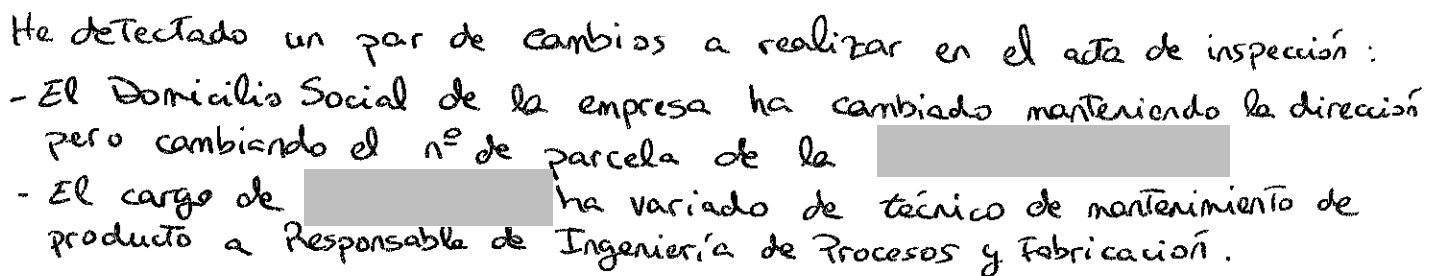 He detectado un par de cambios a realizar en el acta de inspección :
- El Domicilio Social de la empresa ha cambiado manteniendo la dirección
pero cambiando el nº de parcela de la
- El cargo de ha variado de técnico de mantenimiento de
producto a Responsable de Ingeniería de Procesos y Fabricación.